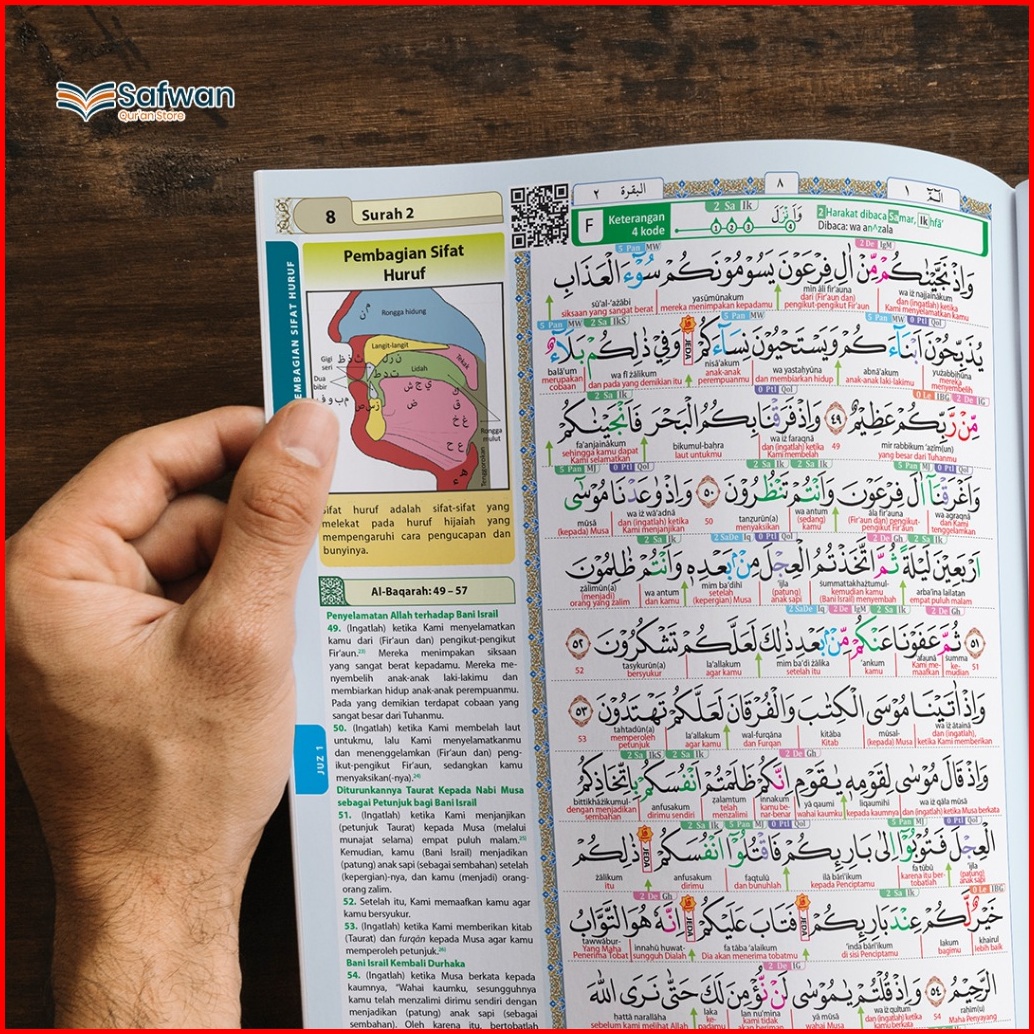 Safwan
Qur'an Store
8 Surah 2
PEMBAGIAN SIFAT HURUF
Pembagian Sifat
Huruf
Rongga hidung
Langit-langit
Gigi
seri
Dua
bibir
Lidah
Tekak
Rongga
mulut
Tenggorokan
Sifat huruf adalah sifat-sifat yang
melekat pada huruf hijaiah yang
mempengaruhi cara pengucapan dan
bunyinya.
Al-Baqarah: 49 – 57
Penyelamatan Allah terhadap Bani Israil
49. (Ingatlah) ketika Kami menyelamatkan
kamu dari (Fir'aun dan) pengikut-pengikut
Fir'aun.²³⁾ Mereka menimpakan siksaan
yang sangat berat kepadamu. Mereka me-
nyembelih anak-anak laki-lakimu dan
membiarkan hidup anak-anak perempuanmu.
Pada yang demikian terdapat cobaan yang
sangat besar dari Tuhanmu.
50. (Ingatlah) ketika Kami membelah laut
untukmu, lalu Kami menyelamatkanmu
dan menenggelamkan (Fir'aun dan) peng-
ikut-pengikut Fir'aun, sedangkan kamu
menyaksikan(-nya).²⁴⁾
Diturunkannya Taurat Kepada Nabi Musa
sebagai Petunjuk bagi Bani Israil
51. (Ingatlah) ketika Kami menjanjikan
(petunjuk Taurat) kepada Musa (melalui
munajat selama) empat puluh malam.²⁵⁾
Kemudian, kamu (Bani Israil) menjadikan
(patung) anak sapi (sebagai sembahan) setelah
(kepergian)-nya, dan kamu (menjadi) orang-
orang zalim.
52. Setelah itu, Kami memaafkan kamu agar
kamu bersyukur.
53. (Ingatlah) ketika Kami memberikan kitab
(Taurat) dan furqān kepada Musa agar kamu
memperoleh petunjuk.²⁶⁾
Bani Israil Kembali Durhaka
54. (Ingatlah) ketika Musa berkata kepada
kaumnya, "Wahai kaumku, sesungguhnya
kamu telah menzalimi dirimu sendiri dengan
menjadikan (patung) anak sapi (sebagai
sembahan). Oleh karena itu, bertobatlah
JUZ 1
البقرة ٢
٨
الٓمّٓ ١
F Keterangan
4 kode
2 Sa Ik
1 2 3 4
وَاَنْزَلَ
2 Harakat dibaca Samar, Ikhfā'
Dibaca: wa anzala
وَاِذْ نَجَّيْنٰكُمْ مِّنْ اٰلِ فِرْعَوْنَ يَسُوْمُوْنَكُمْ سُوْۤءَ الْعَذَابِ
wa iż najjainākum
dan (ingatlah) ketika
Kami menyelamatkan kamu
min āli fir'auna
dari (Fir'aun dan)
pengikut-pengikut Fir'aun
yasūmūnakum
mereka menimpakan kepadamu
sū'al-'ażābi
siksaan yang sangat berat
يُذَبِّحُوْنَ اَبْنَاۤءَكُمْ وَيَسْتَحْيُوْنَ نِسَاۤءَكُمْ ۗ وَفِيْ ذٰلِكُمْ بَلَاۤءٌ
yużabbiḥūna
mereka
menyembelih
abnā'akum
anak-anak laki-lakimu
wa yastaḥyūna
dan membiarkan hidup
nisā'akum
anak-anak
perempuanmu
JEDA
wa fī żālikum
dan pada yang demikian itu
balā'um
merupakan
cobaan
مِّنْ رَّبِّكُمْ عَظِيْمٌ ٤٩ وَاِذْ فَرَقْنَا بِكُمُ الْبَحْرَ فَاَنْجَيْنٰكُمْ
mir rabbikum 'aẓīm(un)
yang besar dari Tuhanmu
49
wa iż faraqnā
dan (ingatlah) ketika
Kami membelah
bikumul-baḥra
laut untukmu
fa'anjainākum
sehingga kamu dapat
Kami selamatkan
وَاَغْرَقْنَآ اٰلَ فِرْعَوْنَ وَاَنْتُمْ تَنْظُرُوْنَ ٥٠ وَاِذْ وٰعَدْنَا مُوْسٰٓى
wa agraqnā
dan Kami
tenggelamkan
āla fir'auna
(Fir'aun dan) pengikut-
pengikut Fir'aun
wa antum
(sedang)
kamu
tanẓurūn(a)
menyaksikan
50
wa iż wā'adnā
dan (ingatlah) ketika
Kami menjanjikan
mūsā
(kepada) Musa
اَرْبَعِيْنَ لَيْلَةً ثُمَّ اتَّخَذْتُمُ الْعِجْلَ مِنْۢ بَعْدِهٖ وَاَنْتُمْ ظٰلِمُوْنَ
arba'īna lailatan
empat puluh malam
summattakhażtumul-
kemudian kamu
(Bani Israil) menyembah
'ijla
(patung)
anak sapi
mim ba'dihī
setelah
(kepergian) Musa
wa antum
dan kamu
ẓālimūn(a)
(menjadi)
orang yang zalim
٥١ ثُمَّ عَفَوْنَا عَنْكُمْ مِّنْۢ بَعْدِ ذٰلِكَ لَعَلَّكُمْ تَشْكُرُوْنَ ٥٢
51
summa
ke-
mudian
'afaunā
Kami me-
maafkan
'ankum
kamu
mim ba'di żālika
setelah itu
la'allakum
agar kamu
tasykurūn(a)
bersyukur
52
وَاِذْ اٰتَيْنَا مُوْسَى الْكِتٰبَ وَالْفُرْقَانَ لَعَلَّكُمْ تَهْتَدُوْنَ ٥٣
wa iż ātainā
dan (ingatlah),
ketika Kami memberikan
mūsal-
(kepada) Musa
kitāba
Kitab
wal-furqāna
dan Furqan
la'allakum
agar kamu
tahtadūn(a)
memperoleh
petunjuk
53
وَاِذْ قَالَ مُوْسٰى لِقَوْمِهٖ يٰقَوْمِ اِنَّكُمْ ظَلَمْتُمْ اَنْفُسَكُمْ بِاتِّخَاذِكُمُ
wa iż qāla mūsā
dan (ingatlah) ketika Musa berkata
liqaumihī
kepada kaumnya
yā qaumi
wahai kaumku
innakum
kamu be-
nar-benar
ẓalamtum
telah
menzalimi
anfusakum
dirimu sendiri
bittikhāżikumul-
dengan menjadikan
sembahan
الْعِجْلَ فَتُوْبُوْٓا اِلٰى بَارِىِٕكُمْ فَاقْتُلُوْٓا اَنْفُسَكُمْ ۗ ذٰلِكُمْ
'ijla
(patung)
anak sapi
fa tūbū
karena itu ber-
tobatlah
ilā bāri'ikum
kepada Penciptamu
faqtulū
dan bunuhlah
anfusakum
dirimu
JEDA
żālikum
itu
خَيْرٌ لَّكُمْ عِنْدَ بَارِىِٕكُمْ ۗ فَتَابَ عَلَيْكُمْ ۗ اِنَّهٗ هُوَ التَّوَّابُ
khairul
lebih baik
lakum
bagimu
'inda bāri'ikum
di sisi Penciptamu
JEDA
fa tāba 'alaikum
Dia akan menerima tobatmu
JEDA
innahū huwat-
sungguh Dialah
tawwābur-
Yang Maha
Penerima Tobat
الرَّحِيْمُ ٥٤ وَاِذْ قُلْتُمْ يٰمُوْسٰى لَنْ نُّؤْمِنَ لَكَ حَتّٰى نَرَى اللّٰهَ
rahim(u)
Maha Penyayang
54
wa iż qultum
dan (ingatlah) ketika
kamu berkata
yā mūsā
wahai Musa
lan nu'mina
kami tidak
akan beriman
laka
ke-
padamu
ḥattā narallāha
sebelum kami melihat Allah